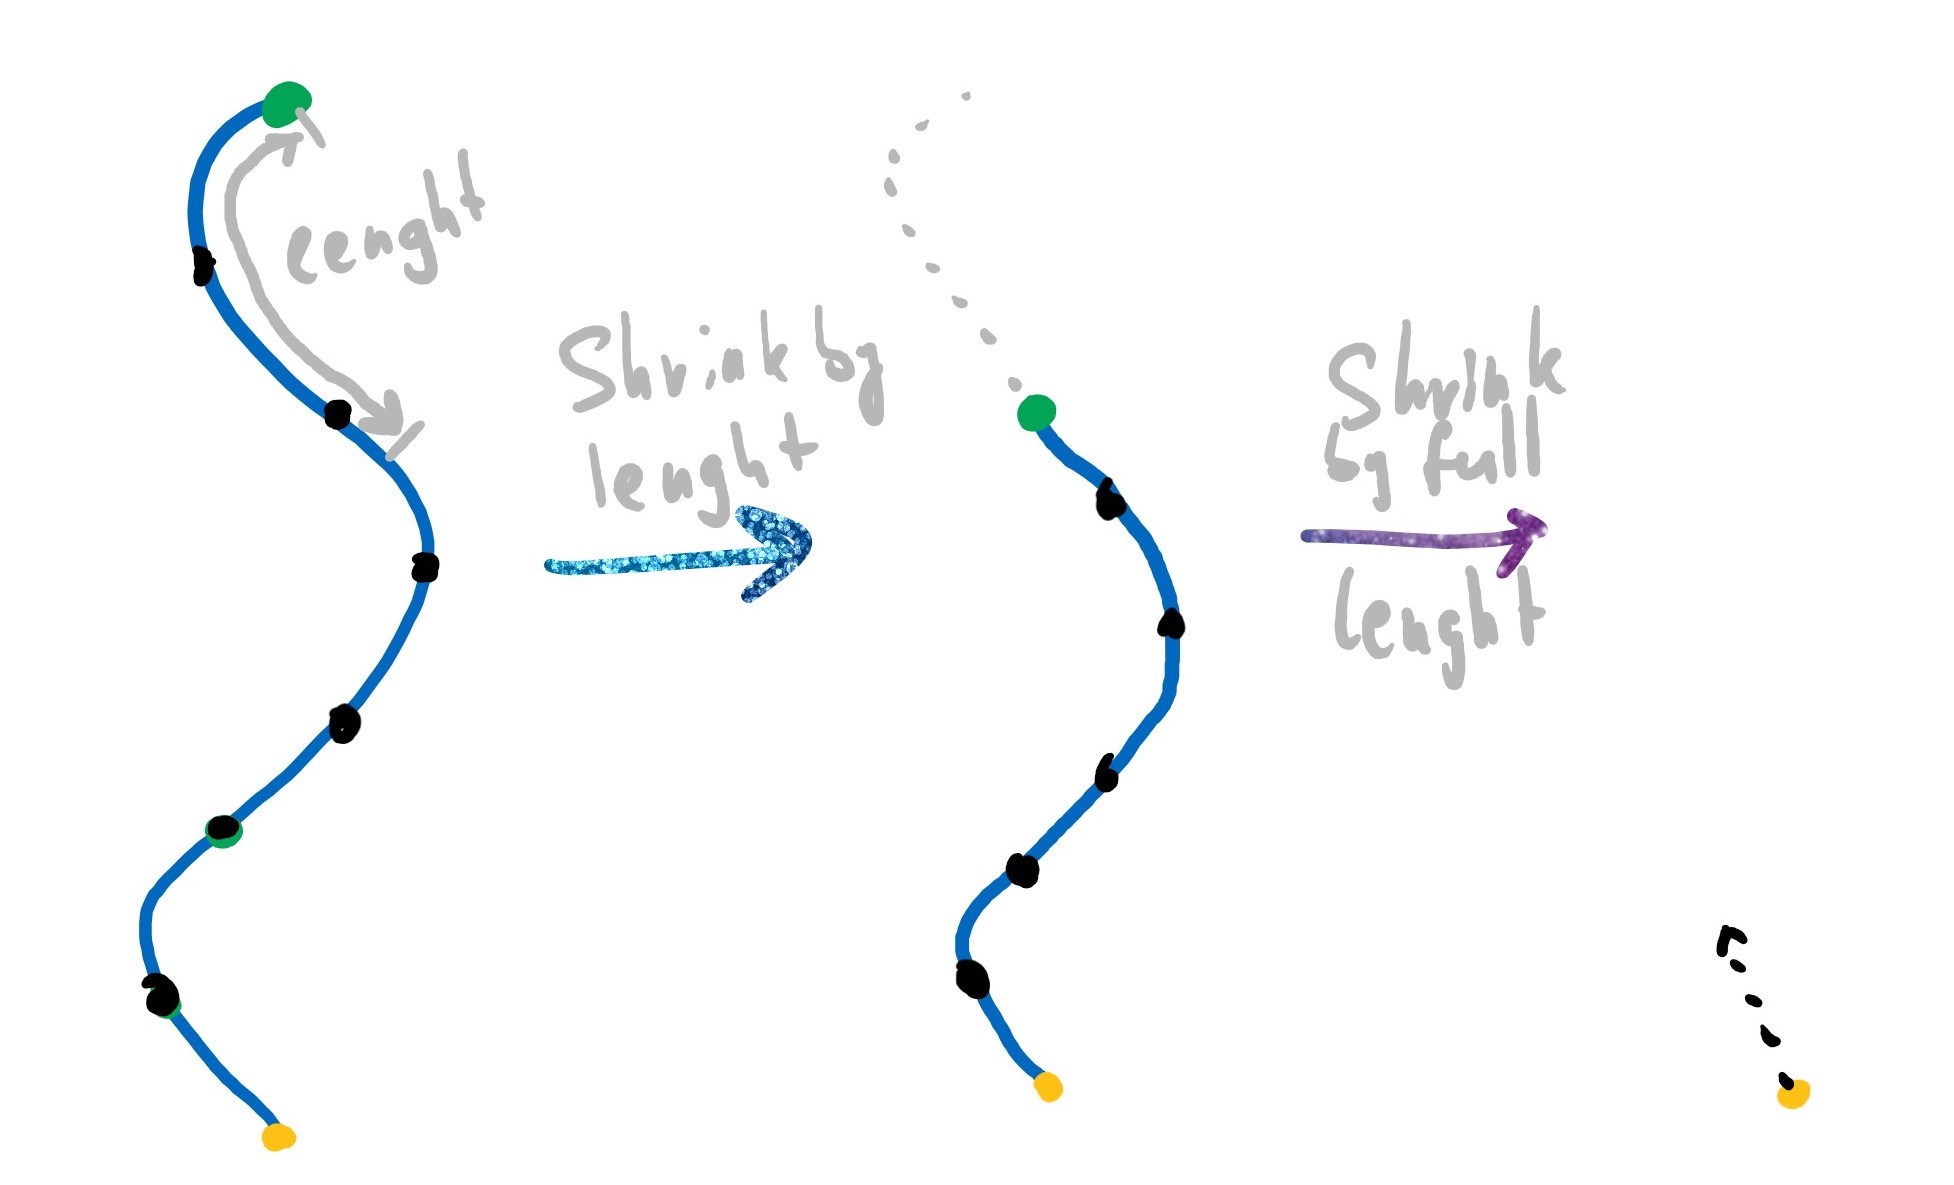 eenght
Shrink by
lenght
Shrink
by full
lenght